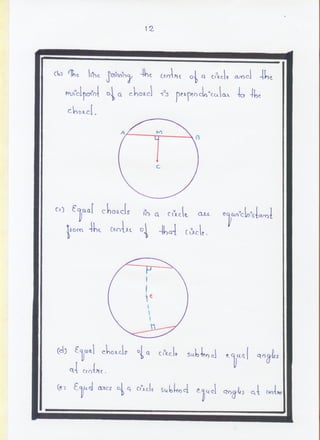 12
(b) The line joining the centre of a circle and the
midpoint of a chord is perpendicular to the
chord.
A M B
C
(c) Equal chords in a circle are equidistant
from the centre of that circle.
c
(d) Equal chords of a circle subtend equal angles
at centre.
(e) Equal arcs of a circle subtend equal angles at centre